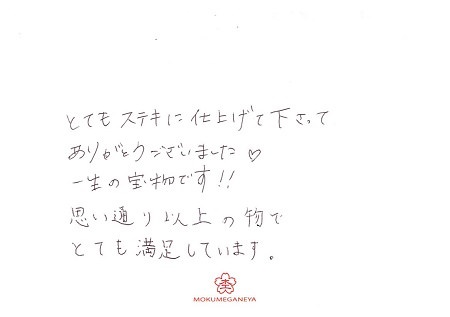 とてもステキに仕上げて下さって
ありがとうございました♡
一生の宝物です!!
思い通り以上の物で
とても満足しています。
MOKUMEGANEYA